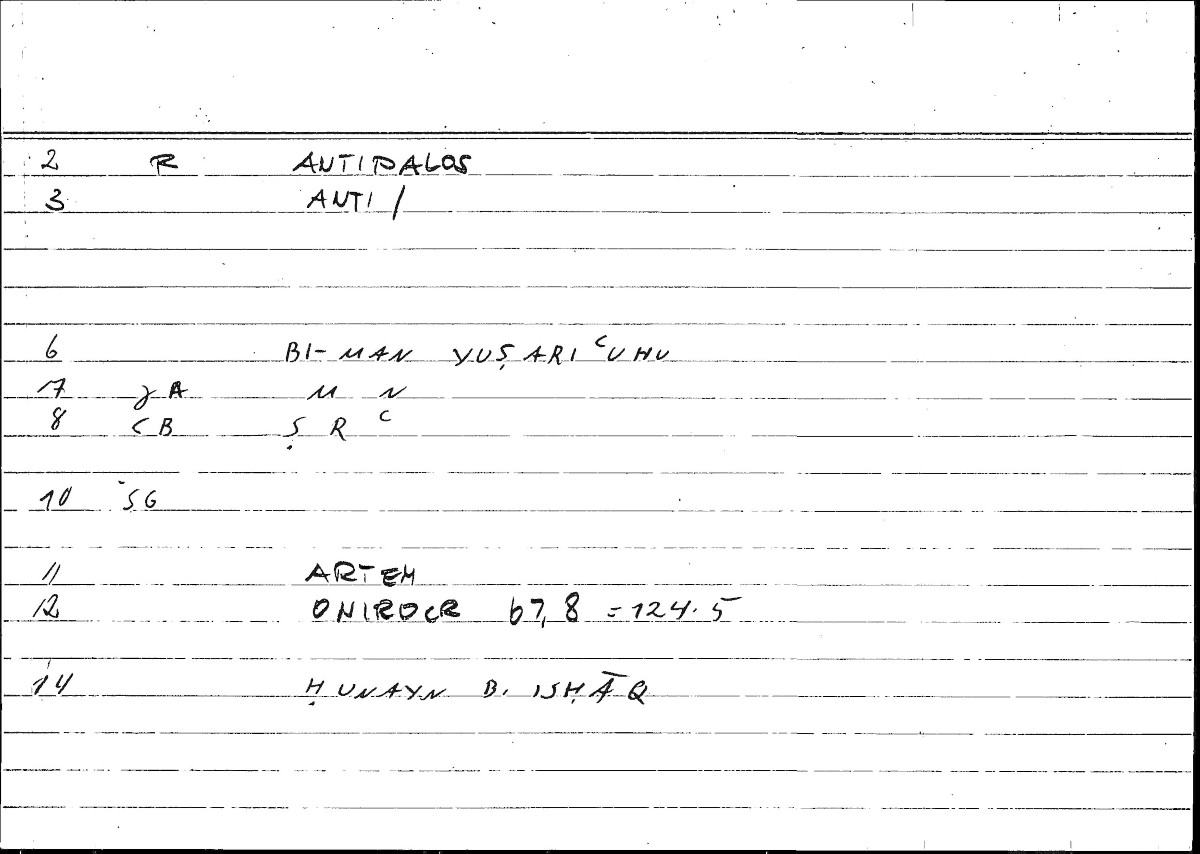 2 R ANTIPALOS
3 ANTI /
6 BI-MAN YUṢARIʿUHU
17 JA M N
8 CB Ṣ R ʿ
10 SG
11 ARTEM
12 ONIROCR 67,8 = 124.5
14 ḤUNAYN B. ISḤĀQ